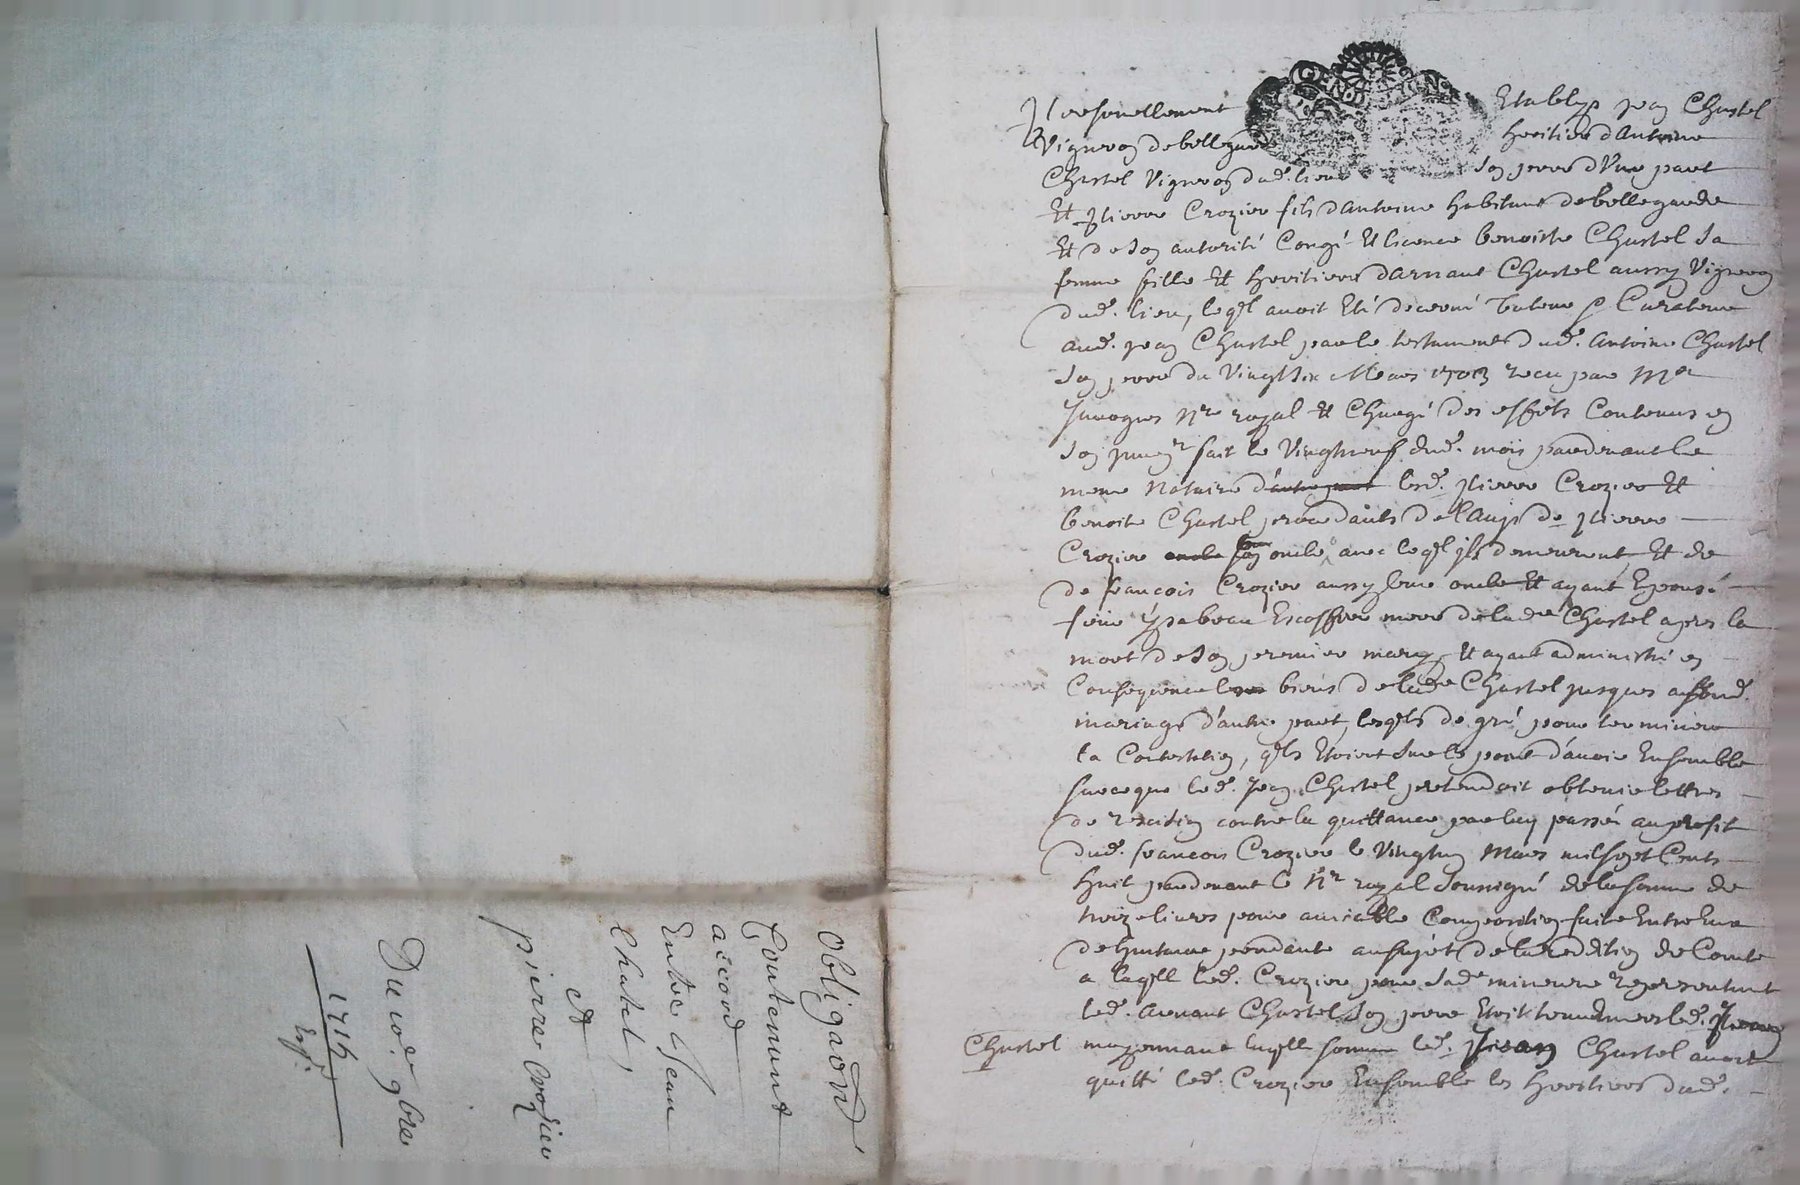 Personellement Etablys Jean Chastel
Vigneron de bellegarde heritier d'Antoine
Chastel Vigneron dud. lieu son pere d'Vne part
Et Pierre Crozier fils d'antoine habitant de bellegarde
Et de son autorité Congé Et licence benoiste Chastel sa
femme fille Et heritiere d'arnaut Chastel aussy Vigneron
dud. lieu, leql avoit Eté decerné tuteur & Curateur
aud. jean Chastel par le testament dud. antoine Chastel
son pere du Vingt six Mars 1703 receu par Me
nre royal Et Chargé des effets Contenus en
son fait le Vingt neuf dud. mois pardevant le
meme Notaire lesd. Pierre Crozier Et
benoite Chastel procedants de l'auis de Pierre
Crozier son oncle avec leql jls demeurent, Et de
de francois Crozier aussy leur oncle Et ayant Epousé
feüe Ysabeau Escoffier mere de lade Chastel apres la
mort de son premier mary, Et ayant administré en
Consequence les biens de lade Chastel jusques a sond.
mariage d'autre part, lesqls de gré pour terminer
la Contestation, qls Etoient sur le point d'avoir Ensemble
sur ce que led. Jean Chastel pretendoit obtenir lettres
de rescision contre la quittance par luy passée au profit
dud. francois Crozier le Vingt un Mars mil sept Cents
huit pardevant le Nre royal soussigné de la somme de
treize livres pour amiable Composition faite Entre Eux
de linstance pendante au sujet de la reddition de Comte
a laqlle led. Crozier pour sade mineure representant
led. Arnaut Chastel son pere Etoit tenu Envers led. Jean
Chastel moyennant laqlle somme led. Jean Chastel avoit
quitté led. Crozier Ensemble les heritiers dud.
Obligaõn
Contenant
accord
Entre Jean
Chatel,
Et
pierre Crozier
Du 10e. 9bre
1716
Exp.